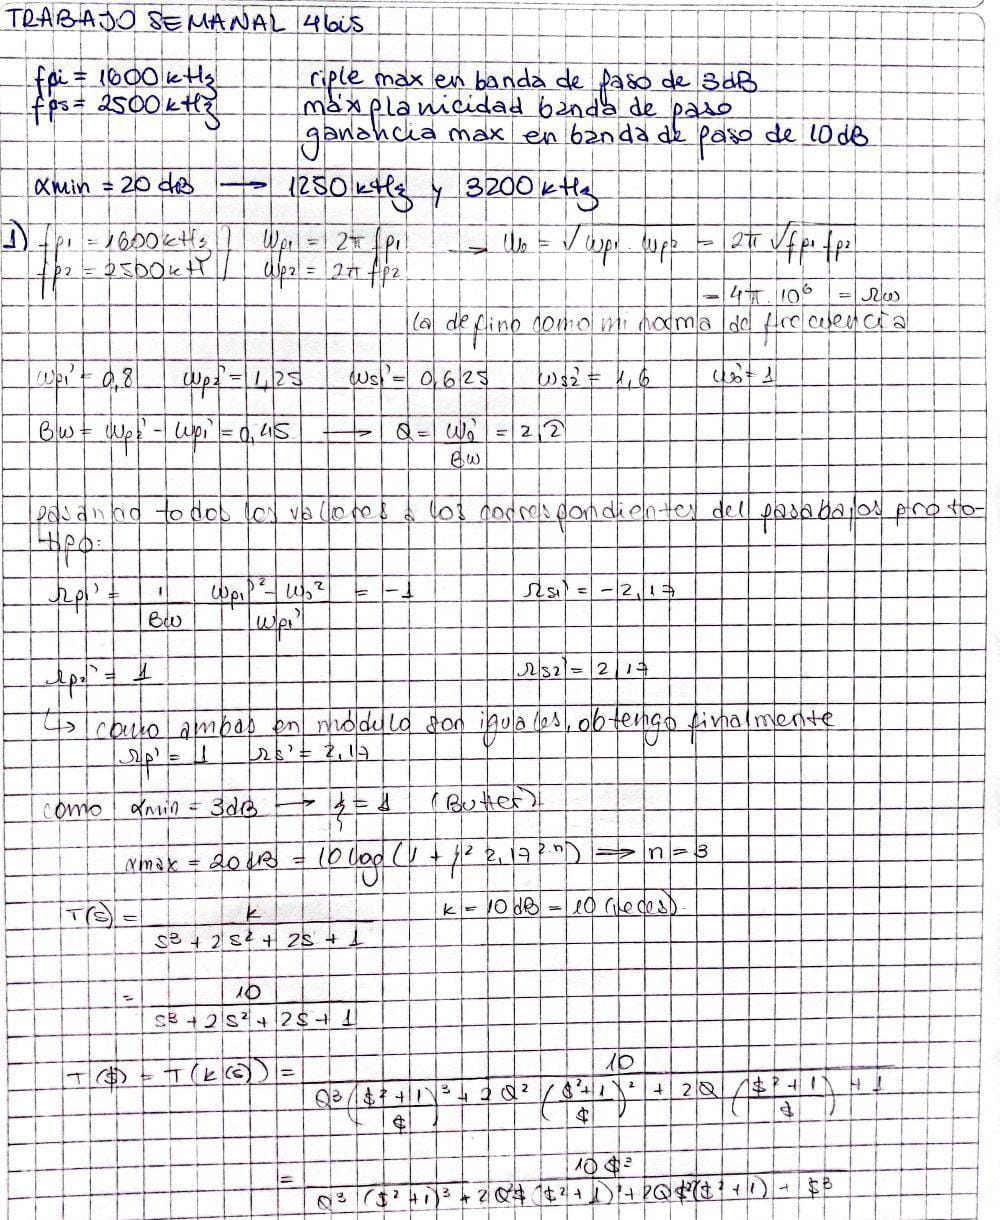 TRABAJO SEMANAL 4bis
fpi = 1600 kHz riple max en banda de paso de 3dB
fps = 2500 kHz máx planicidad banda de paso
ganancia max en banda de paso de 10 dB
αmin = 20 dB → 1250 kHz y 3200 kHz
1) fp1 = 1600 kHz ] ωp1 = 2π fp1 → ω0 = √ωp1 . ωp2 = 2π √fp1 fp2
fp2 = 2500 kH ] ωp2 = 2π fp2
= 4π . 10⁶ = Ωω
la defino como mi norma de frecuencia
ωp1' = 0,8 ωp2' = 1,25 ωs1' = 0,625 ωs2' = 1,6 ω0' = 1
Bω = ωp2' - ωp1' = 0,45 → Q = ω0' / Bω = 2,2
pasando todos los valores a los correspondientes del pasabajos proto-
tipo:
Ωp1' = 1/Bω (ωp1'² - ω0²)/ωp1' = -1 Ωs1' = -2,17
Ωp2' = 1 Ωs2' = 2,17
↳ como ambas en módulo son iguales, obtengo finalmente
Ωp' = 1 Ωs' = 2,17
como αmin = 3dB → ξ = 1 (Butter)
αmax = 20 dB = 10 log (1 + 1² 2,17^2.n) ⇒ n = 3
T(s) = k / (s³ + 2s² + 2s + 1) k = 10 dB = 10 (veces).
= 10 / (s³ + 2s² + 2s + 1)
T($) = T(k(s)) = 10 / (Q³ (($²+1)/$)³ + 2Q² (($²+1)/$)² + 2Q (($²+1)/$) + 1)
= 10 $³ / (Q³ ($²+1)³ + 2Q²$ ($²+1)² + 2Q$²($²+1) + $³)